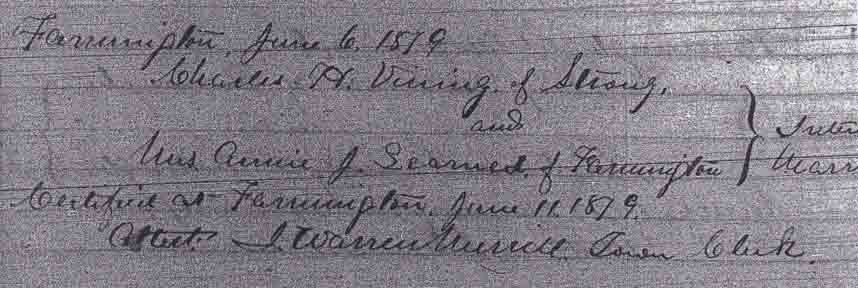 Farmington, June 6, 1879
Charles H. Vining of Strong,
and
Mrs Annie J. Learned, of Farmington } Inten
Marr
Certified at Farmington, June 11. 1879.
Attest: J. Warren Merrill. Town Clerk.